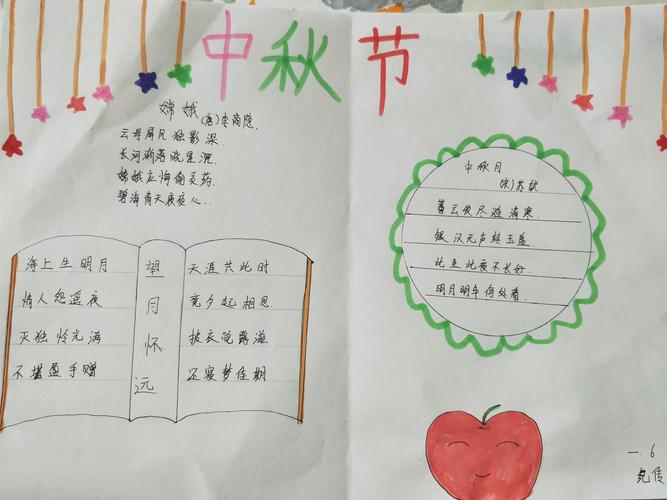 中秋节
嫦娥 (唐) 李商隐.
云母屏风独影深
长河渐落晓星沉
嫦娥应悔偷灵药.
碧海青天夜夜心..
海上生明月.
情人怨遥夜
灭独怜光满
不堪盈手赠
望月怀远
天涯共此时
竟夕起相思.
披衣觉露滋
还寝梦佳期
中秋月
(宋)苏轼
暮云收尽溢清寒.
银汉无声转玉盘.
此生此夜不长好.
明月明年何处看.
一.6